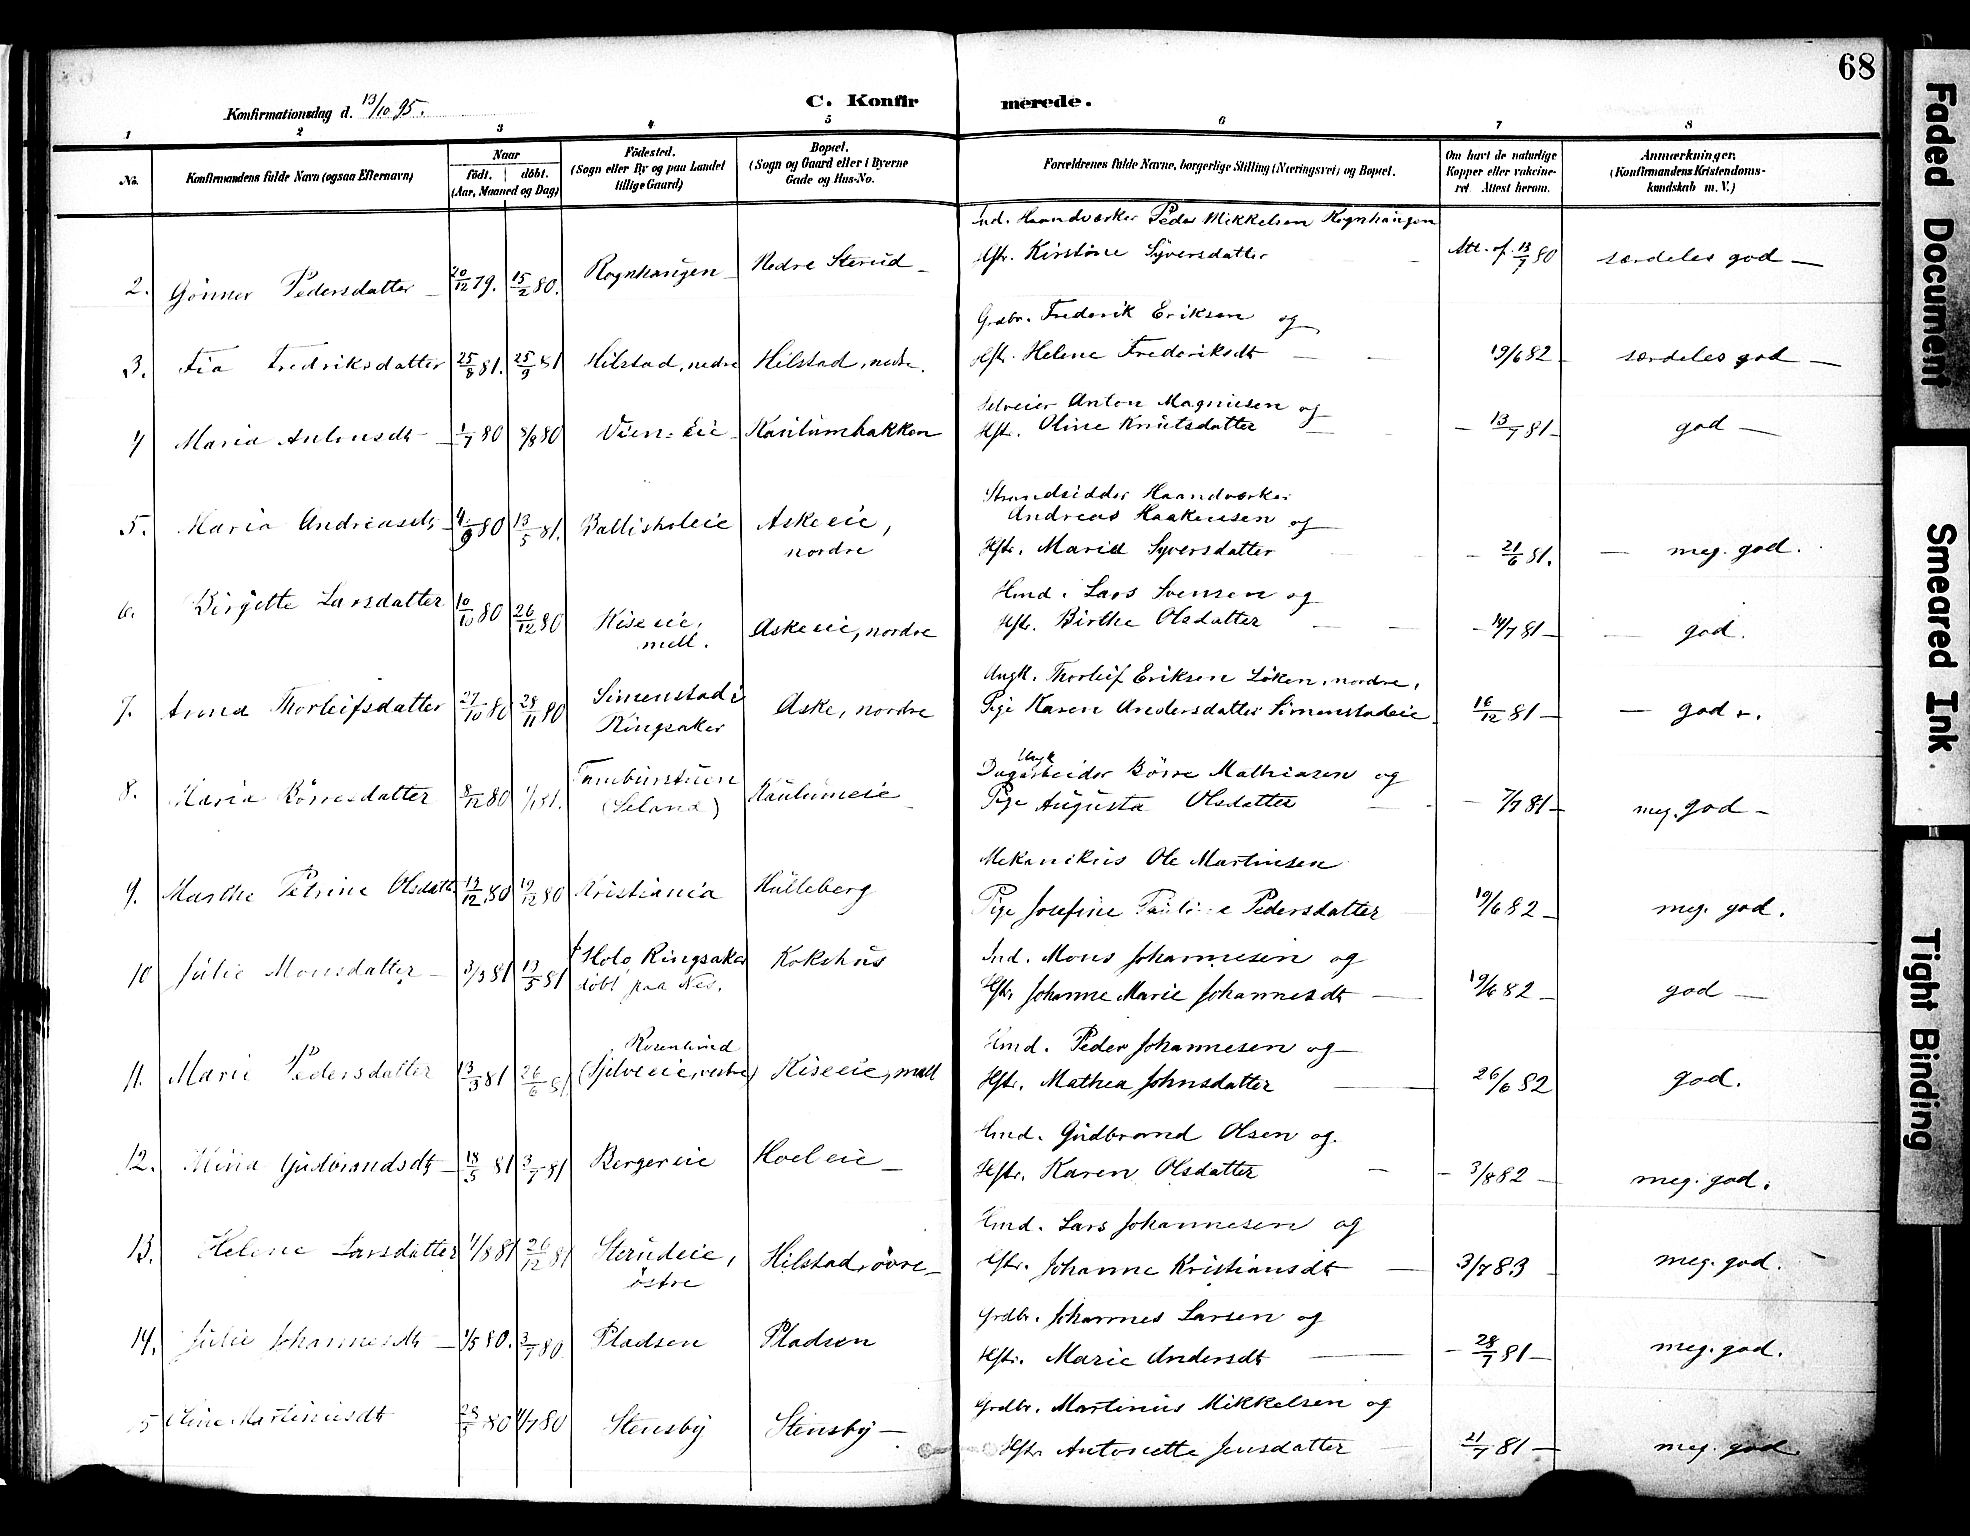 68
Konfirmationsdag d. 13/10 95.
C. Konfirmerede.
1 2 3 4 5 6 7 8
No.
Konfirmandens fulde Navn (ogsaa Efternavn)
Naar
født. døbt.
(Aar, Maaned og Dag)
Fødested.
(Sogn eller By og paa Landet
tillige Gaard)
Bopæl.
(Sogn og Gaard eller i Byerne
Gade og Hus-No.
Forældrenes fulde Navne, borgerlige Stilling (Næringsvei) og Bopæl.
Om havt de naturlige
Kopper eller vakcine-
ret. Attest herom.
Anmærkninger.
(Konfirmandens Kristendoms-
kundskab m. V.)
Ind. Haandværker Peder Mikkelsen Rognhaugen
2. Gönner Pedersdatter 20/12 79. 15/2 80. Rognhaugen Nedre Sterud Hstr. Kirstine Syversdatter Att. af 13/7 80 særdeles god
Grdbr. Frederik Eriksen og
3. Fia Fredriksdatter 25/8 81. 25/9 81 Hilstad, nedre Hilstad, nedre. Hstr. Helene Frederiksdt 19/6 82 særdeles god
Selveier Anton Magnusen og
4 Maria Antonsdt 1/7 80 8/8 80 Vien-Eie Kaulumbakken Hstr. Oline Knutsdatter 13/7 81 god
Strandsidder Haandværker
Andreas Haakensen og
5. Maria Andreasdt 4/9 80 13/5 81. Ballisholeie Aske eie,
nordre Hstr. Maria Syversdatter 21/6 81. meg. god.
Hmd. Lars Svensen og
6. Birgitte Larsdatter 10/10 80 26/12 80 Kise eie,
mell. Aske eie, nordre Hstr. Birthe Olsdatter 14/7 81 god.
Ungk. Thorleif Eriksen Löken, nordre,
7. Anna Thorleifsdatter 27/10 80 28/11 80 Simenstad i
Ringsaker Aske, nordre Pige Karen Andersdatter Simenstadeie 16/12 81 god
Ungk
Dagarbeider Börre Mathiasen og
8. Maria Börresdatter 8/12 80 1/1 81. Tamburstuen
(Seland) Kaulumeie Pige Augusta Olsdatter 7/7 81 meg. god
Mekanikus Ole Martinsen
9. Marthe Petrine Olsdatt 13/12 80 19/12 80 Kristiania Hulleberg Pige Josefine Pauline Pedersdatter 19/6 82 meg. god.
Ind. Mons Johannesen og
10 Julie Monsdatter 3/3 81 13/5 81 Holo Ringsaker
döbt paa Nes. Kokshus Hstr Johanne Marie Johannesdt 19/6 82 god
Hmd. Peder Johannesen og
11. Marie Pedersdatter 13/3 81 26/6 81 Rosenlund
(Tjelveeie, vestre) Kiseeie, mell Hstr. Mathea Johnsdatter 26/6 82 god.
Hmd. Gudbrand Olsen og
12. Mina Gudbrandsdt 18/5 81 3/7 81 Bergereie Hoeleie Hstr. Karen Olsdatter 3/8 82 meg. god.
Hmd. Lars Johannesen og
13. Helene Larsdatter 4/8 81 26/12 81 Sterudeie,
östre Hilstad, övre Hstr. Johanne Kristiansdt 3/7 83 meg. god.
Grdbr. Johannes Larsen og
14. Julie Johannesdt 1/5 80. 3/7 80 Pladsen Pladsen Hstr. Marie Andersdt 28/7 81 meg. god.
Grdbr. Martinus Mikkelsen og
5 Oline Martinusdt 80 4/7 80 Stensby Stensby Hstr. Antonette Jensdatter 21/7 81 meg. god.
Faded Document
Smeared Ink.
Tight Binding